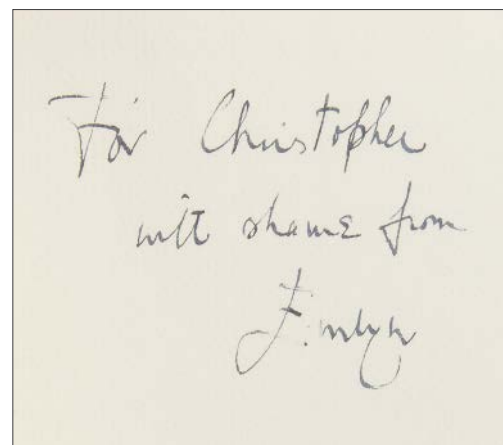 For Christopher
with shame from
Emlyn